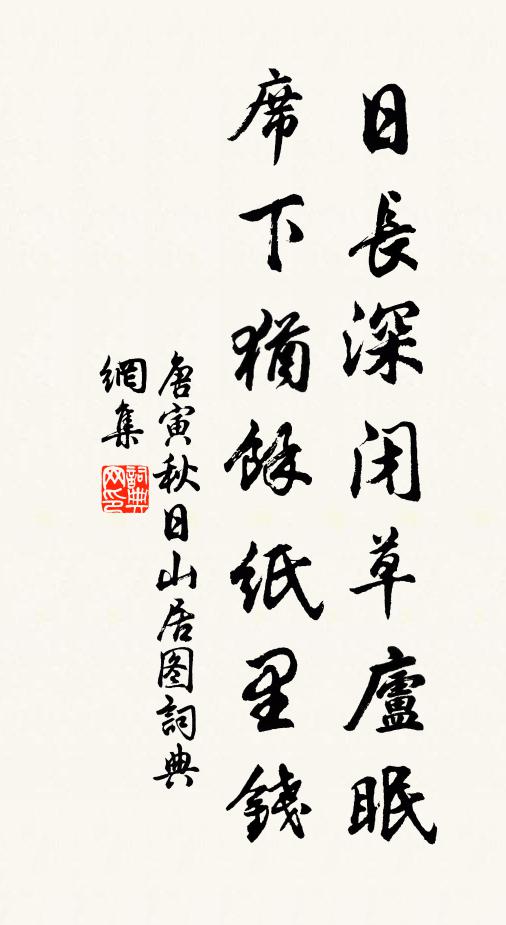 日長深閉草廬眠
席下猶餘紙里錢
唐寅秋日山居图詞典
網集
詞典
网印